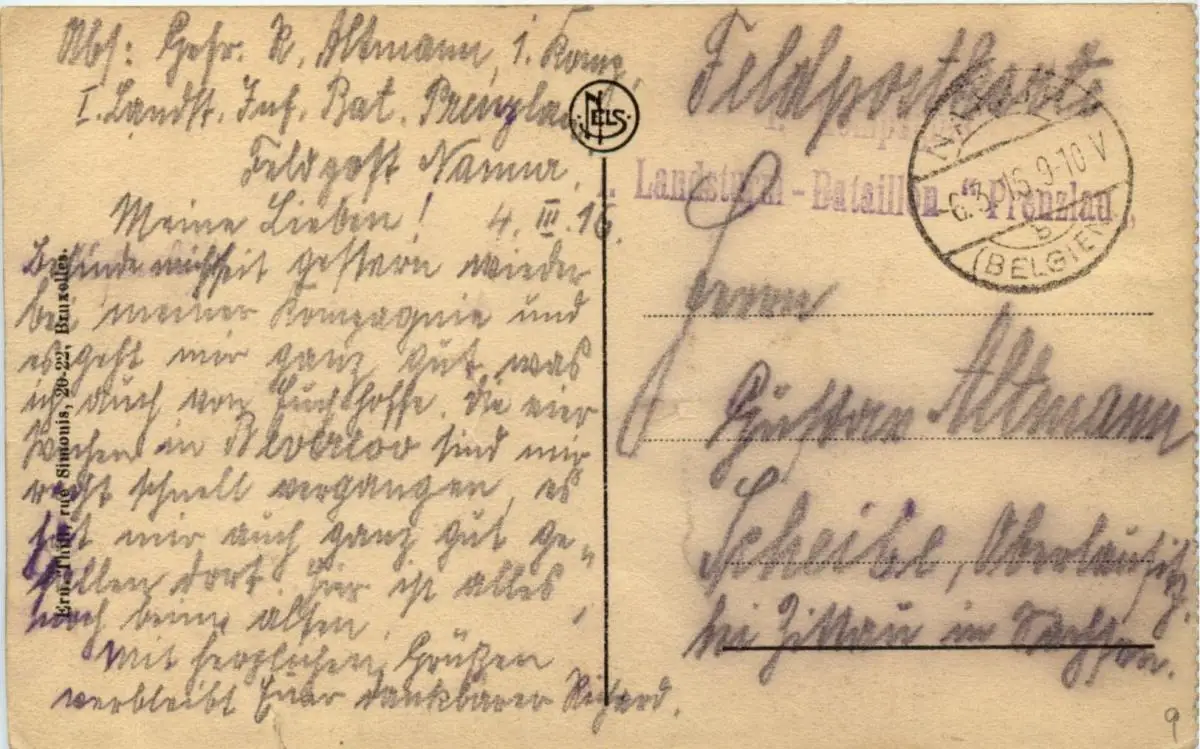 Abs: Gefr. R. Altmann, 1. Komp.
I. Landst. Inf. Bat. Prenzlau
Feldpost Namur.
Meine Lieben! 4. III. 16.
Befinde mich seit gestern wieder
bei meiner Kompagnie und
es geht mir ganz gut, was
ich auch von Euch hoffe. Die vier
Wochen in sind mir
recht schnell vergangen, es
hat mir auch ganz gut ge-
fallen dort. Hier ist alles
noch beim alten.
Mit herzlichen Grüßen
verbleibt Euer dankbarer Richard.
NELS
Ern. Thill, rue Simonis, 20-22, Bruxelles.
Feldpostkarte
1. Landsturm-Bataillon "Prenzlau"
-6.3.16. 9-10 V
b
(BELGIEN)
Herrn
Gustav Altmann
Scheibe, Oberlausitz.
bei Zittau in Sachsen.
9